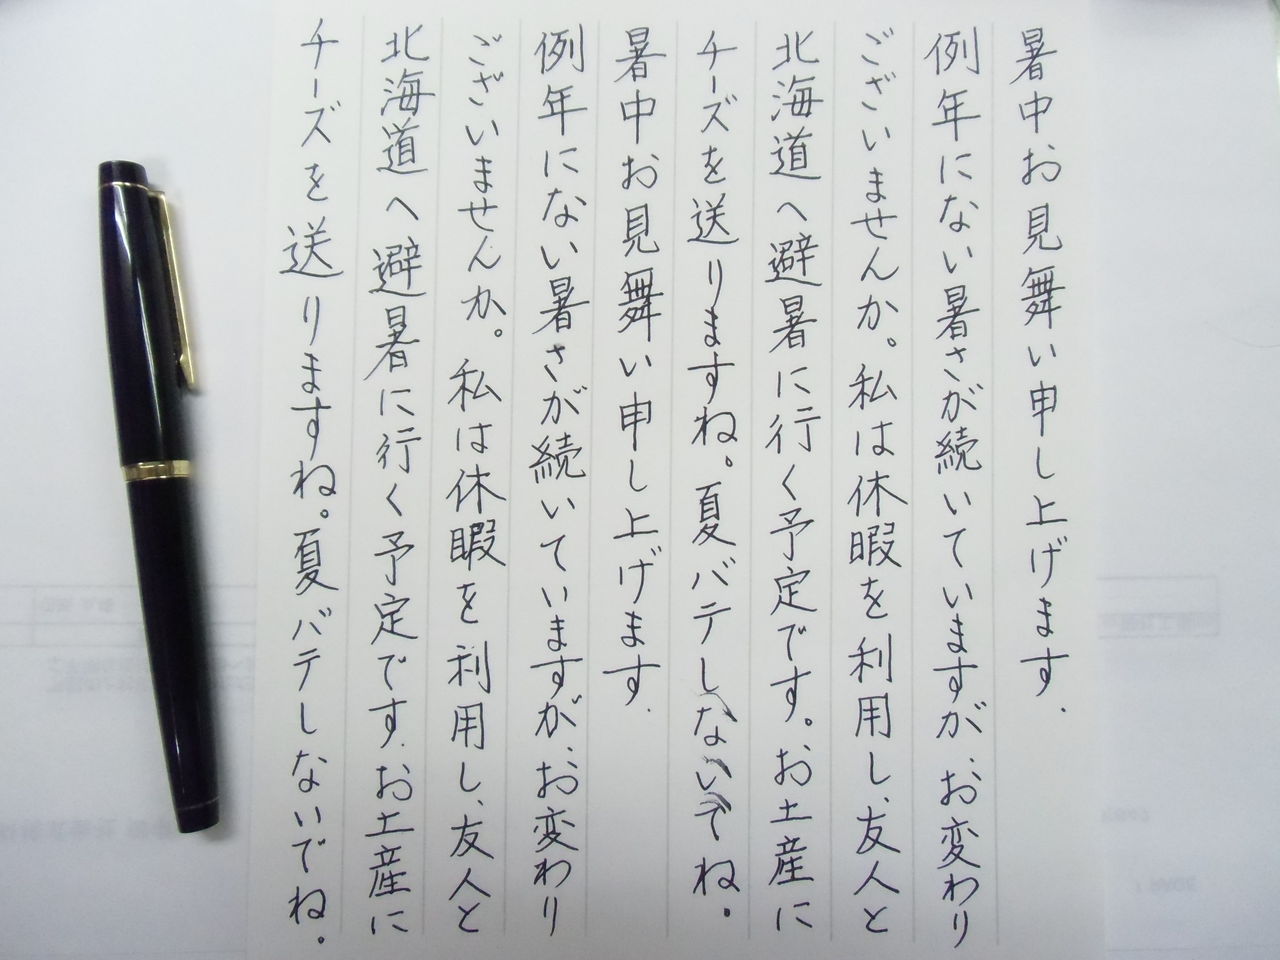 暑中お見舞い申し上げます.
例年にない暑さが続いていますが、お変わり
ございませんか。私は休暇を利用し、友人と
北海道へ避暑に行く予定です。お土産に
チーズを送りますね。夏バテしないでね.
暑中お見舞い申し上げます.
例年にない暑さが続いていますが、お変わり
ございませんか。私は休暇を利用し、友人と
北海道へ避暑に行く予定です.お土産に
チーズを送りますね。夏バテしないでね.